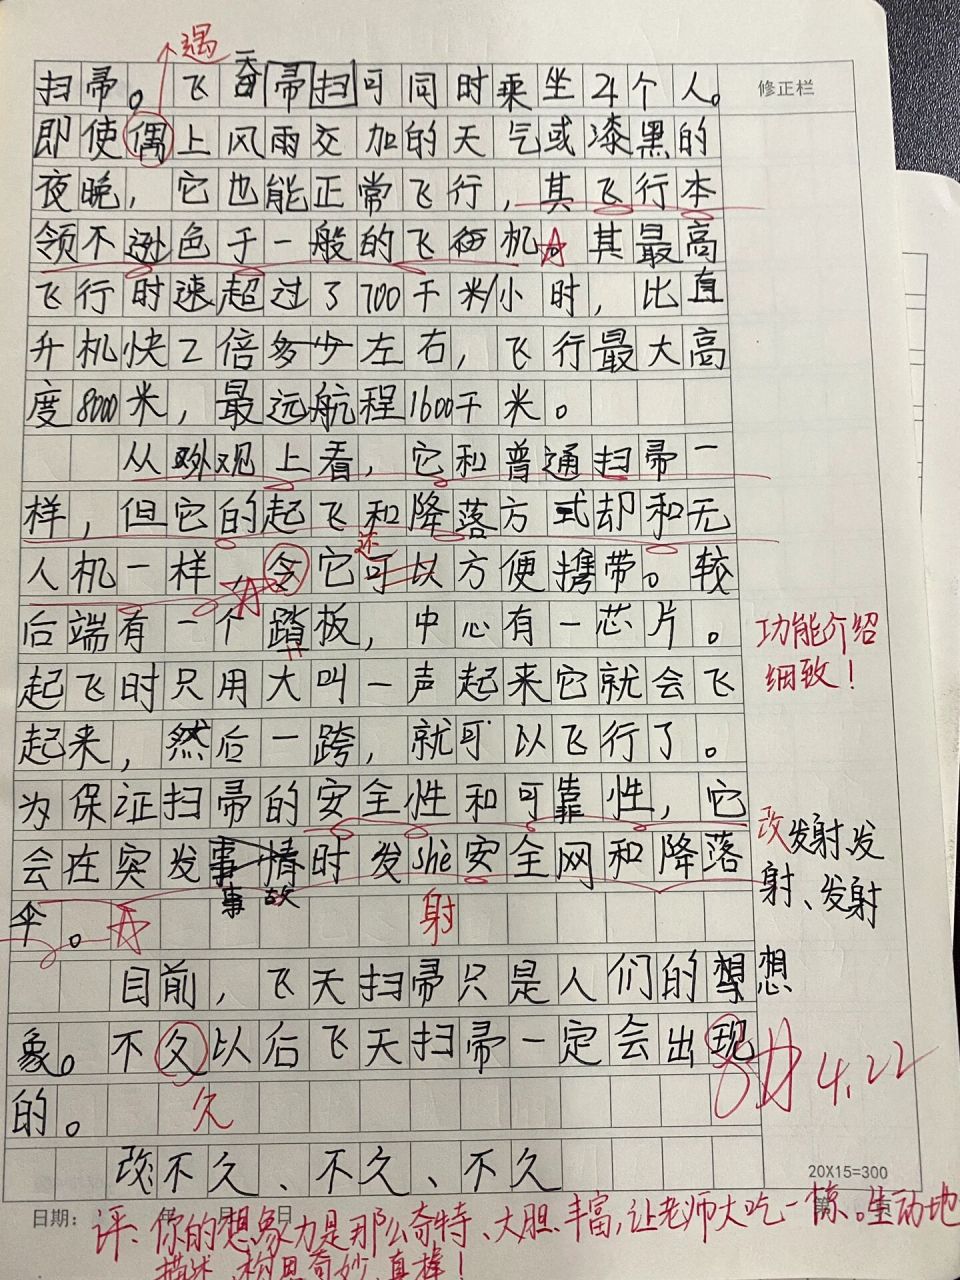 遇
扫帚。飞天帚扫可同时乘坐24个人。
修正栏
即使偶上风雨交加的天气或漆黑的
夜晚，它也能正常飞行，其飞行本
领不逊色于一般的飞机。其最高
飞行时速超过了700千米/小时，比直
升机快2倍多少左右，飞行最大高
度8000米，最远航程1600千米。
从外观上看，它和普通扫帚一
样，但它的起飞和降落方式却和无
人机一样 令它可以方便携带。较
还
后端有一个踏板，中心有一芯片。
功能介绍
细致！
起飞时只用大叫一声起来它就会飞
起来，然后一跨，就可以飞行了。
为保证扫帚的安全性和可靠性，它
会在突发事情时发shè安全网和降落
事故
改发射、发
射、发射
伞。
射
目前，飞天扫帚只是人们的想
想
象。不夂以后飞天扫帚一定会出现
4.22
的。
久
改：不久、不久、不久
20X15=300
日期： 年 月 日 第 页
评：你的想象力是那么奇特、大胆、丰富，让老师大吃一惊。生动地
描述，构思奇妙，真棒！